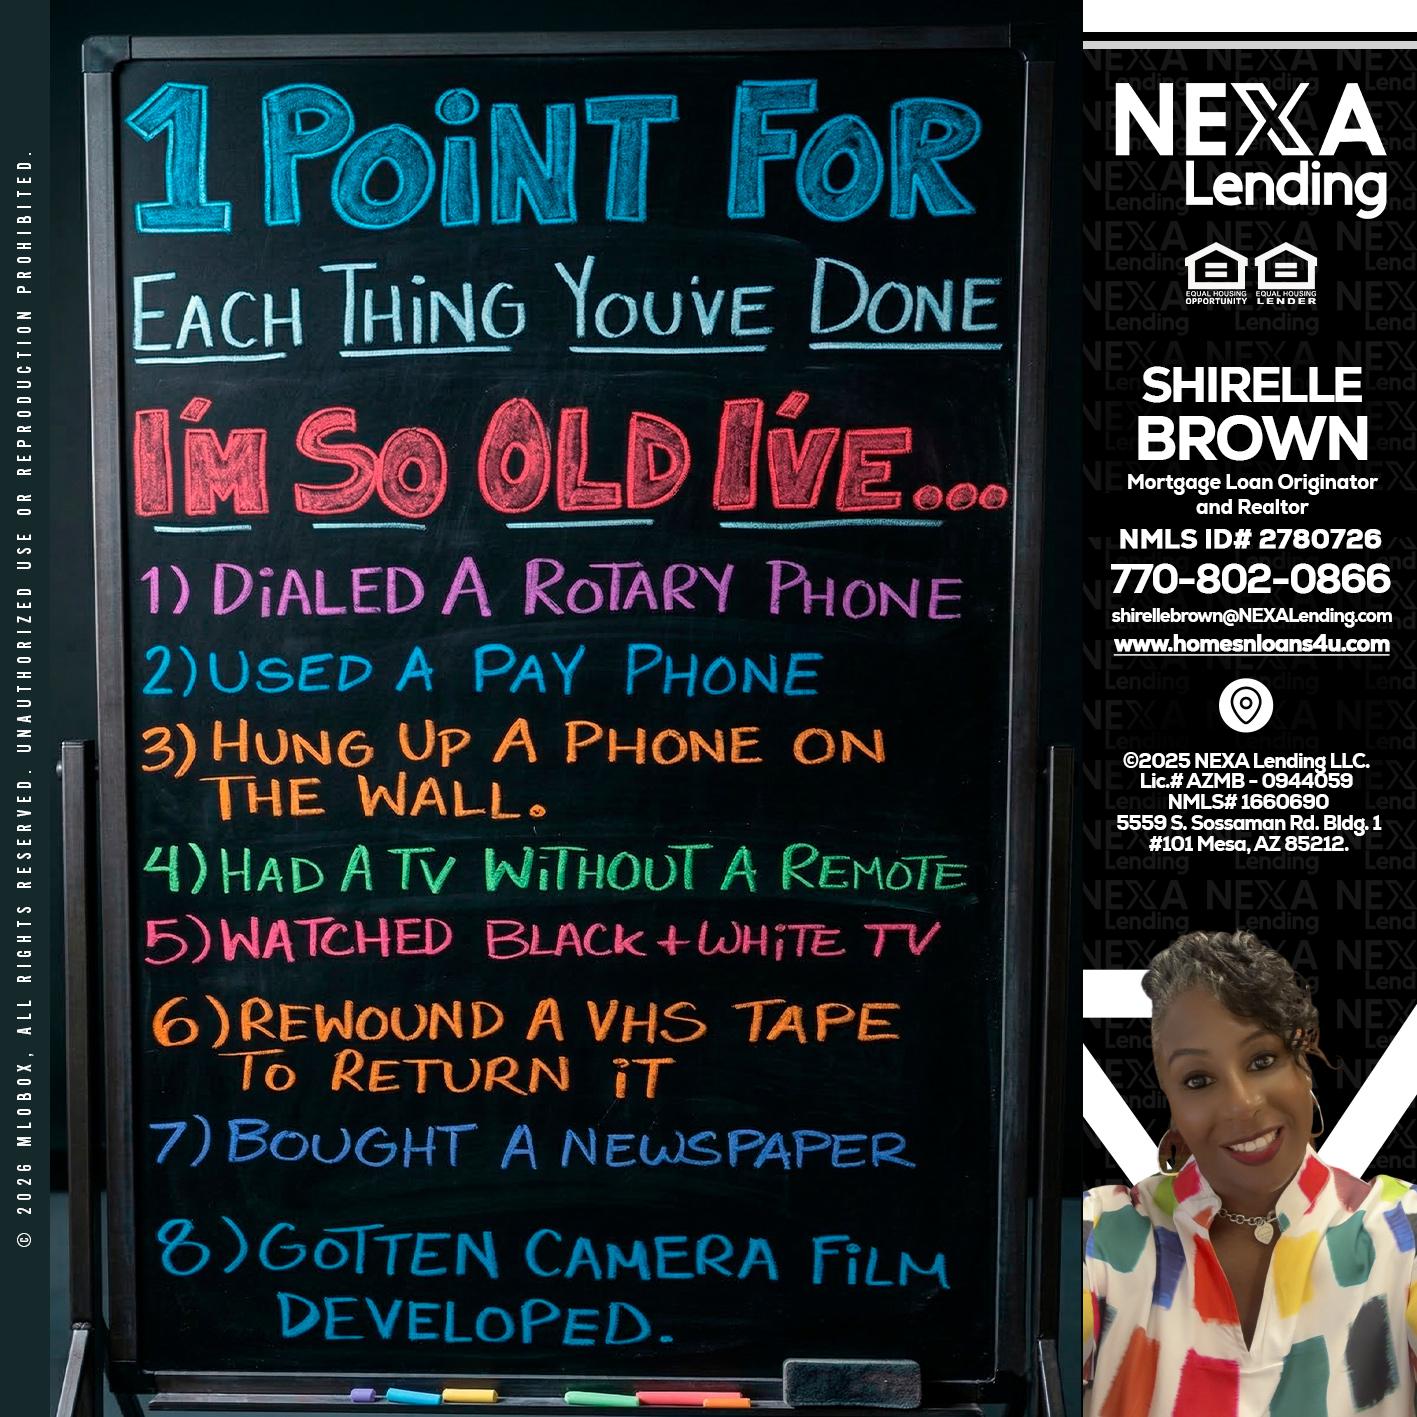 1 POINT FOR
EACH THING YOU'VE DONE
I'M SO OLD I'VE...
1) DIALED A ROTARY PHONE
2) USED A PAY PHONE
3) HUNG UP A PHONE ON
THE WALL.
4) HAD A TV WITHOUT A REMOTE
5) WATCHED BLACK + WHITE TV
6) REWOUND A VHS TAPE
TO RETURN IT
7) BOUGHT A NEWSPAPER
8) GOTTEN CAMERA FILM
DEVELOPED.
© 2026 MLOBOX, ALL RIGHTS RESERVED. UNAUTHORIZED USE OR REPRODUCTION PROHIBITED.
NEXA
Lending
EQUAL HOUSING
OPPORTUNITY
EQUAL HOUSING
LENDER
SHIRELLE
BROWN
Mortgage Loan Originator
and Realtor
NMLS ID# 2780726
770-802-0866
shirellebrown@NEXALending.com
www.homesnloans4u.com
©2025 NEXA Lending LLC.
Lic.# AZMB - 0944059
NMLS# 1660690
5559 S. Sossaman Rd. Bldg. 1
#101 Mesa, AZ 85212.